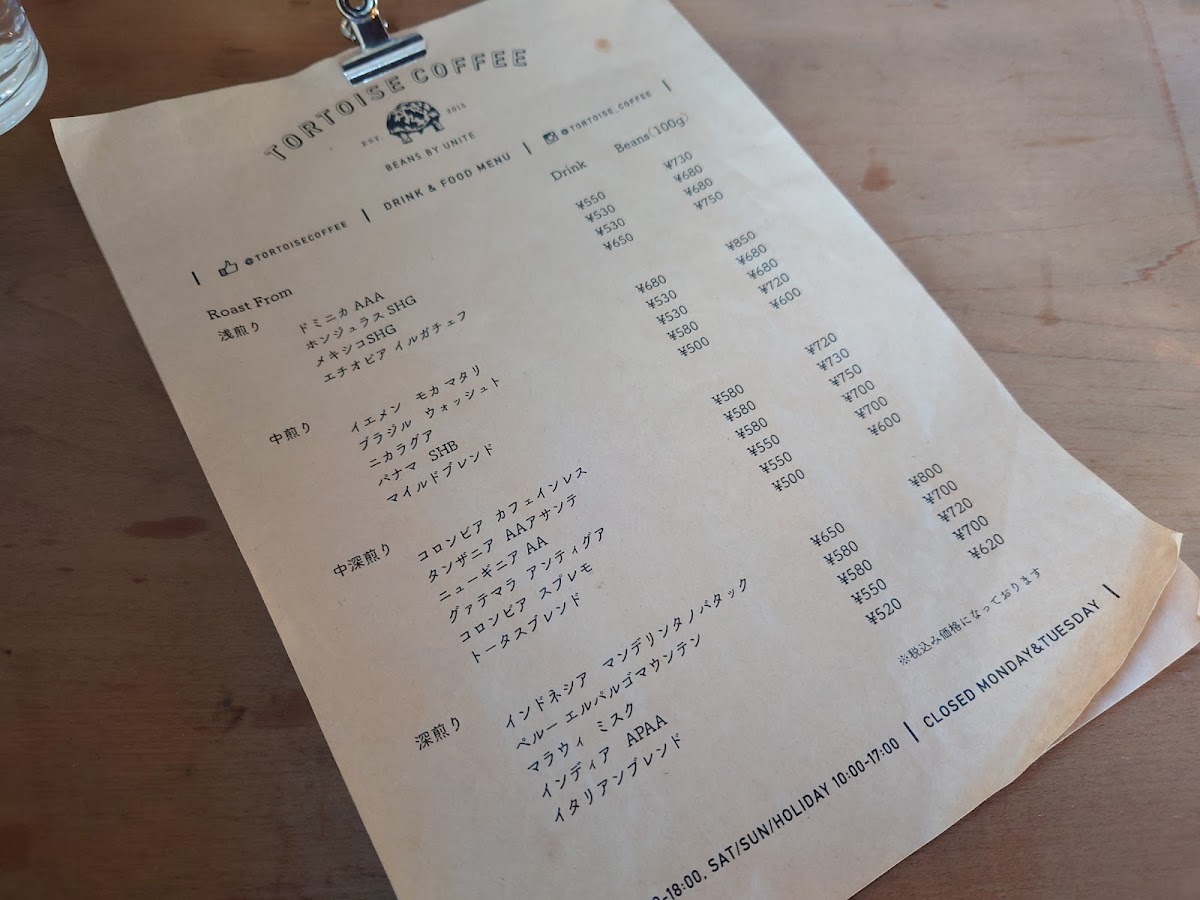 TORTOISE COFFEE
EST 2015
BEANS BY UNITE
| @TORTOISECOFFEE | DRINK & FOOD MENU | @TORTOISE_COFFEE |
Roast From Drink Beans(100g)
浅煎り ドミニカ AAA ¥550 ¥730
ホンジュラス SHG ¥530 ¥680
メキシコSHG ¥530 ¥680
エチオピア イルガチェフ ¥650 ¥750
中煎り イエメン モカ マタリ ¥680 ¥850
ブラジル ウォッシュト ¥530 ¥680
ニカラグア ¥530 ¥680
パナマ SHB ¥580 ¥720
マイルドブレンド ¥500 ¥600
中深煎り コロンビア カフェインレス ¥580 ¥720
タンザニア AAアサンテ ¥580 ¥730
ニューギニア AA ¥580 ¥750
グァテマラ アンティグア ¥550 ¥700
コロンビア スプレモ ¥550 ¥700
トータスブレンド ¥500 ¥600
深煎り インドネシア マンデリンタノバタック ¥650 ¥800
ペルー エルパルゴマウンテン ¥580 ¥700
マラウィ ミスク ¥580 ¥720
インディア APAA ¥550 ¥700
イタリアンブレンド ¥520 ¥620
※税込み価格になっております
-18:00, SAT/SUN/HOLIDAY 10:00-17:00 | CLOSED MONDAY&TUESDAY |